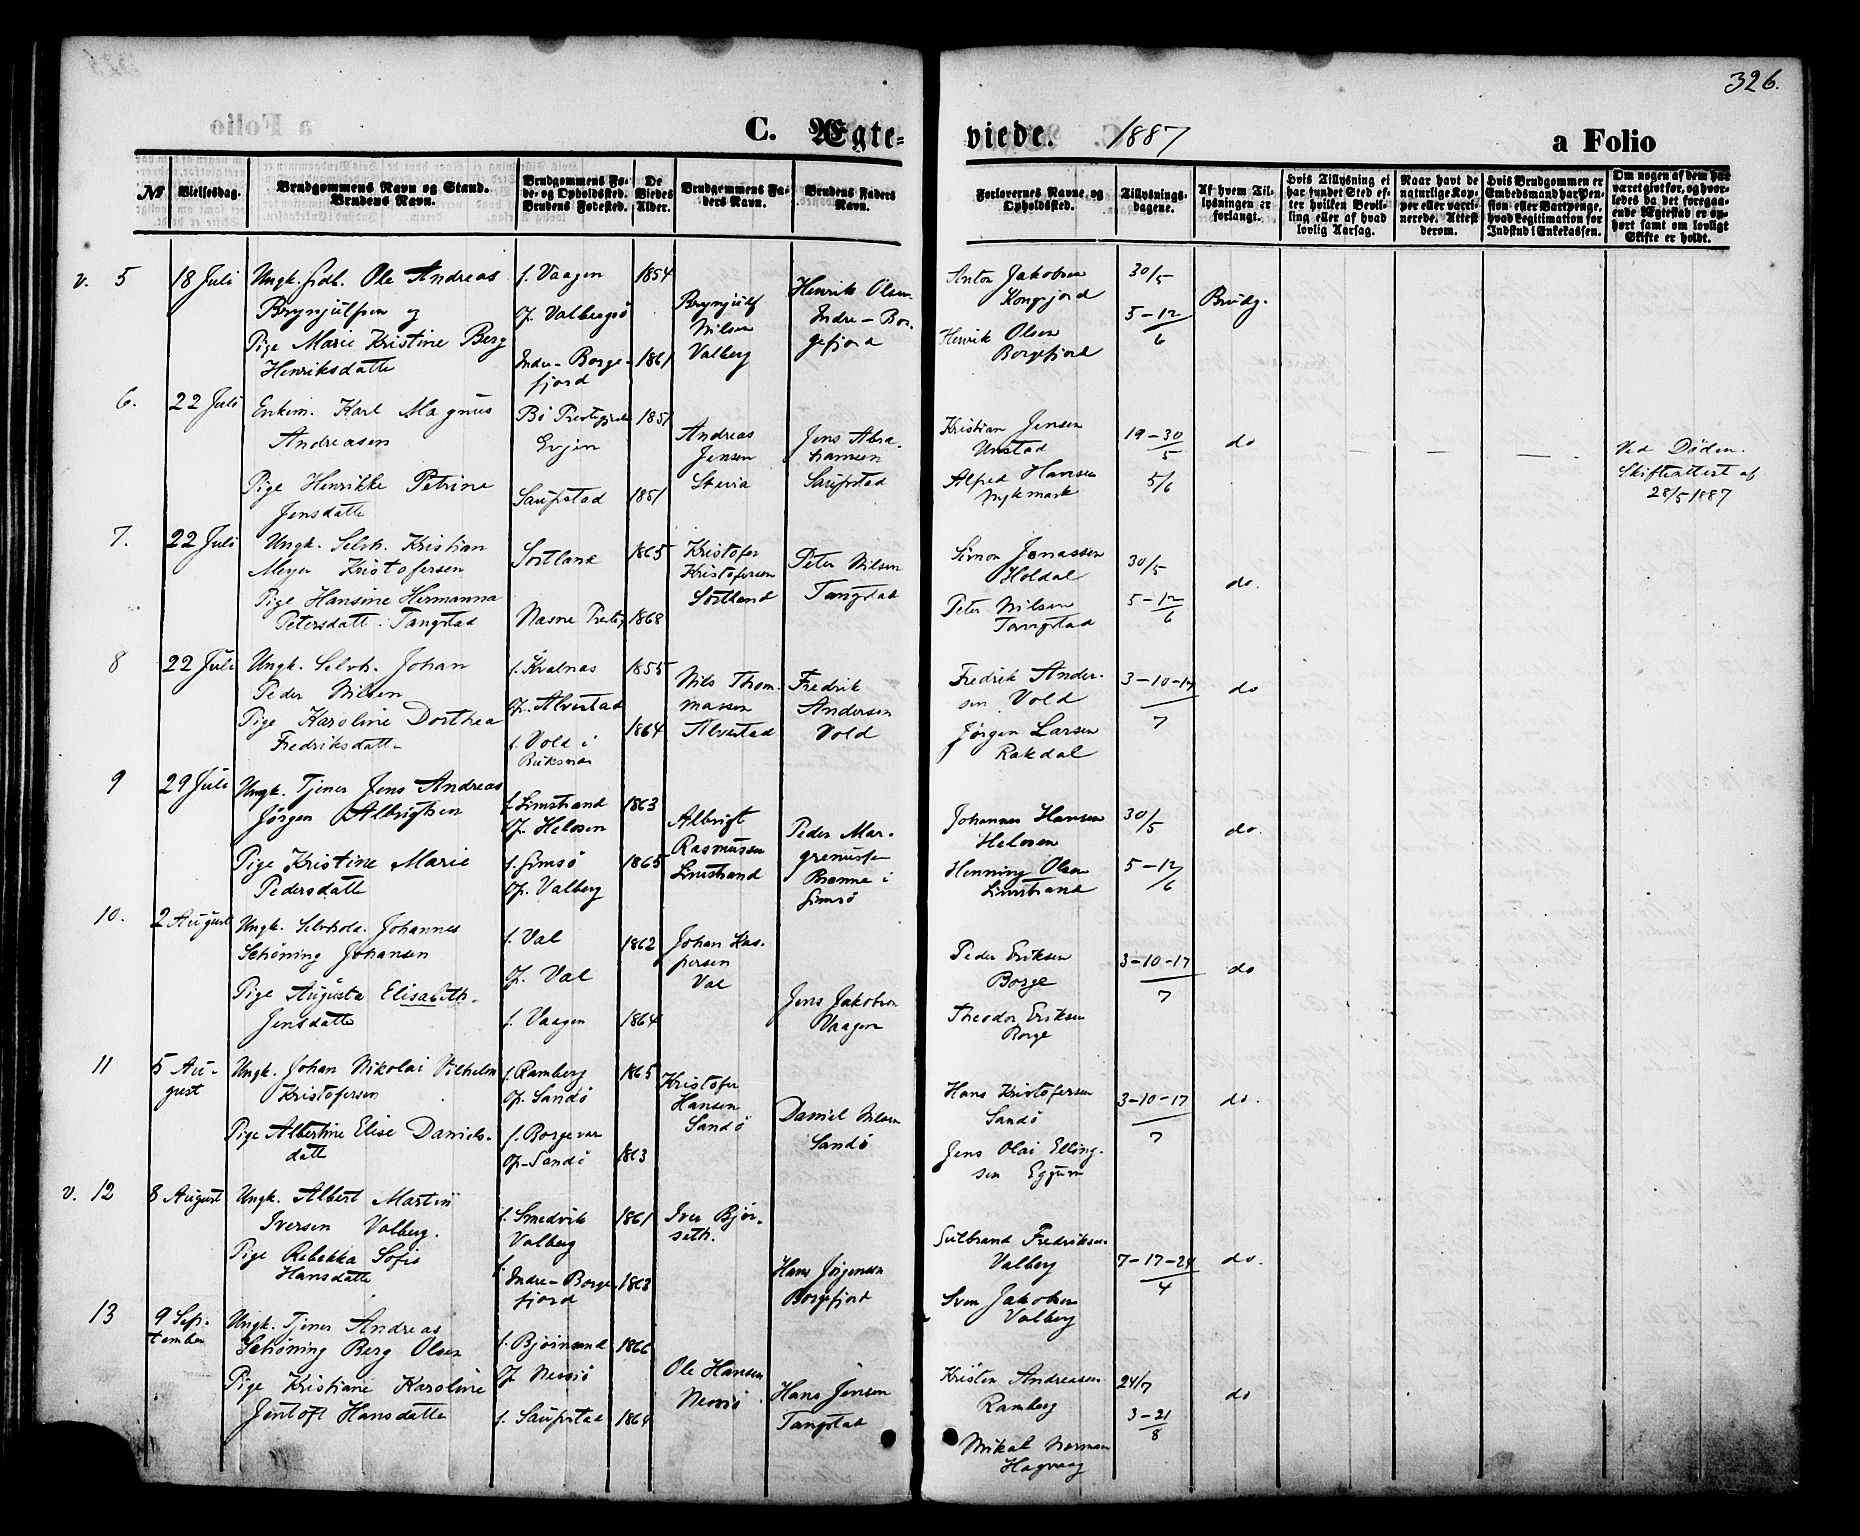 326.
C. Ægte-
viede. 1887
a Folio
No
Vielsesdag.
Brudgommens Navn og Stand.
Brudens Navn.
Brudgommens Fø-
de- og Opholdssted.
Brudens Fødested.
De
Viedes
Alder.
Brudgommens Fa-
ders Navn.
Brudens Faders
Navn.
Forlovernes Navne, og
Opholdssted.
Tillysnings-
dagene.
Af hvem Til-
lysningen er
forlangt.
Hvis Tillysning ei
har fundet Sted ef-
ter hvilken Bevil-
ling eller af hvad
lovlig Aarsag.
Naar havt de
naturlige Kop-
per eller vacci-
nerede. Attest
derom.
Hvis Brudgommen er
Embedsmand har Pen-
sion eller Vartpenge,
hvad Legitimation for
Indskud i Enkekassen.
Om nogen af dem har
været givt før, og hvor-
ledes da det foregaa-
ende Ægteskab er op-
hørt samt om lovligt
Skifte er holdt.
v. 5
18 Juli
Ungk. Andreas
Brynjulfsen og
Pige Marie Kristine Berg
Henriksdatte
f. Vaagen
Op. Valbergsö
Indre-Borge-
fjord
1854
1861
Brynjulf
Nilsen
Valberg
Henrik Olsen
Indre-Bor-
gefjord
Anton Jakobsen
Kongsjord
Henrik Olsen
Borgefjord
30/5
5-12
6
Brudg.
6.
22 Juli
Enkem. Karl Magnus
Andreasen
Pige Henrikke Petrine
Jensdatte
Bö Prestegjeld
Evjen
Saupstad
1851
1851
Andreas
Jensen
Steria
Jens Abra-
hamsen
Saupstad
Kristian Jensen
Unstad
Alfred Hansen
Nykmark
19-30
5
5/6
do
Ved Döden.
Skifteattest af
28/5 1887
7.
22 Juli
Ungk. Selvh. Kristian
Meyer Kristofersen
Pige Hansine Hermanna
Petersdatt. Tangstad
Sortland
Nasne Prestg
1865
1868
Kristofer
Kristofersen
Sortland
Peter Nilsen
Tangstad
Simon Jonassen
Holdal
Peter Nilsen
Tangstad
30/5
5-12
6
do.
8
22 Juli
Ungk. Selvh. Johan
Peder Nilsen
Pige Karoline Dorthea
Fredriksdatte
f. Kvalnas
Op. Alvestad
f. Vold i
Buksnæs
1855
1864
Nils Thom-
massen
Alvestad
Fredrik
Andersen
Vold
Fredrik Ander-
sen Vold
Jørgen Larsen
Rakdal
3-10-17
7
do
9
29 Juli
Ungk. Tjener Jens Andreas
Jörgen Albrigtsen
Pige Kristine Marie
Pedersdatte
f. Limstrand
Op. Helosen
f. Gimsö
Op. Valberg
1863
1865
Albrigt
Rasmussen
Limstrand
Peder Mar-
grenusse
Brenna i
Gimsö
Johannes Hansen
Helosen
Henning Olsen
Limstrand
30/5
5-12
6
do.
10.
2 August
Ungk. Selvhold. Johannes
Schöning Johansen
Pige Augusta Elisabeth
Jensdatte
f. Val
Op. Val
f. Vaagen
1862
1864
Johan Kas-
persen
Val
Jens Jakobsen
Vaagen
Peder Eriksen
Borge
Theodor Eriksen
Borge
3-10-17
7
do
11
5 Au-
gust
Ungk. Johan Nikolai Vilhelm
Kristofersen
Pige Albertine Elise Daniels-
datte
f. Ramberg
Op. Sandö
f. Borgevær
Op. Sandö
1865
1863
Kristofer
Hansen
Sandö
Daniel Nilsen
Sandö
Hans Kristofersen
Sandö
Jens Olai Elling-
sen Eggum
3-10-17
7
do.
v. 12
8 August
Ungk. Albert Martin
Iversen Valberg.
Pige Rebekka Sofie
Hansdatte
f. Smedvik
Valberg
f. Indre-Borge-
fjord
1861
1863
Iver Björ-
seth.
Hans Jörgensen
Borgefjord
Gulbrand Fredriksen
Valberg
Sven Jakobsen
Valberg
7-17-24
4
do.
13
9 Sep-
tember
Ungk. Tjener Andreas
Schöning Berg Olsen
Pige Kristiane Karoline
Jentoft Hansdatte
f. Björnsand
Op.
f. Saupstad
1866
1864
Ole Hansen
Hans Jensen
Tangstad
Kristen Andreasen
Ramberg
Mikal Norman
Hagvaag
24/7
3-21
8
do